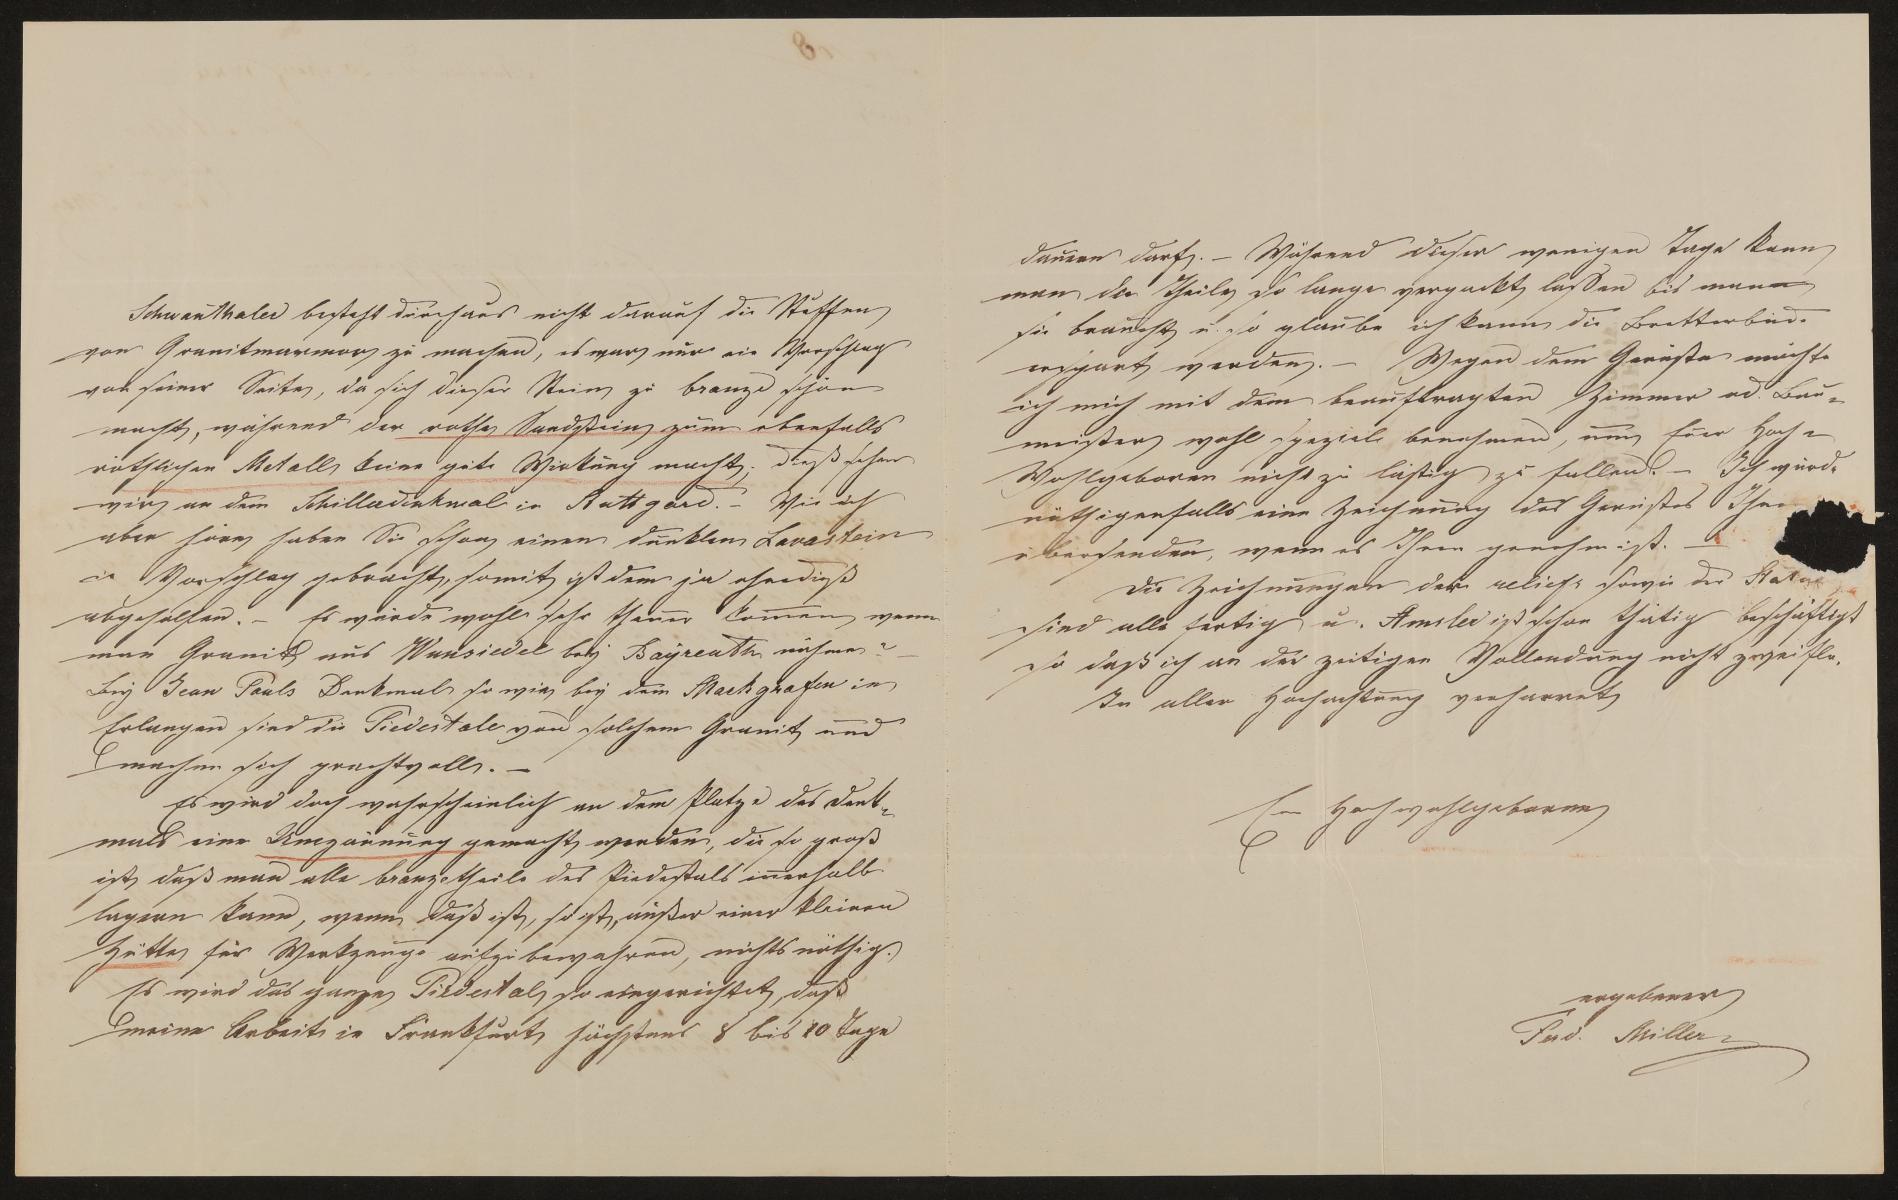 8
Schwanthaler besteht durchaus nicht darauf die Stuffen
von Granitmarmor zu machen, es war nur ein Vorschlag
von seiner Seite, da sich dieser Stein zu bronze schön
macht, während der rothe Sandstein zum ebenfalls
röthlichen Metall keine gute Wirkung macht; dieß sehen
wir an dem Schillerdenkmal in Stuttgard. – Wie ich
aber höre haben Sie schon einen dunklen Lavastein
in Vorschlag gebracht, somit ist dem ja ohnedieß
abgeholfen. – Es würde wohl sehr theuer kom̅en wenn
man Granit aus Wunsiedel bey Bayreuth nähme? –
Bey Jean Pauls Denkmal so wie bey dem Markgrafen in
Erlangen sind die Piedestale von solchem Granit und
machen sich prachtvoll. –
Es wird doch wahrscheinlich an dem Platze des Denk-
mals eine Umzäunung gemacht werden, die so groß
ist, daß man alle bronzetheile des Piedestals in̅erhalb
lagern kann, wenn daß ist, so ist, außer einer kleinen
Hütte für Werkzeuge aufzubewahren, nichts nöthig.
Es wird das ganze Piedestal so eingerichtet, daß
meine Arbeit in Frankfurt höchstens 8 bis 10 Tage
dauern darf. – Während dieser wenigen Tage kann
man die Theile so lange verpackt lassen bis man
sie braucht u. so glaube ich kann die Bretterbude
erspart werden. – Wegen dem Gerüste möchte
ich mich mit dem beauftragten Zimmer od. Bau-
meister wohl speziell benehmen, um Euer Hoch-
Wohlgeboren nicht zu lästig zu fallen. – Ich würde
nöthigenfalls eine Zeichnung des Gerüstes
übersenden, wenn es Ihnen genehm ist. –
Die Zeichnungen der reliefs sowie der
sind alle fertig u. Amsler ist schon thätig beschäftigt
so daß ich an der zeitigen Vollendung nicht zweifle.
In aller Hochachtung verharret
Eu Hochwohlgeboren
ergebener
Ferd. Miller